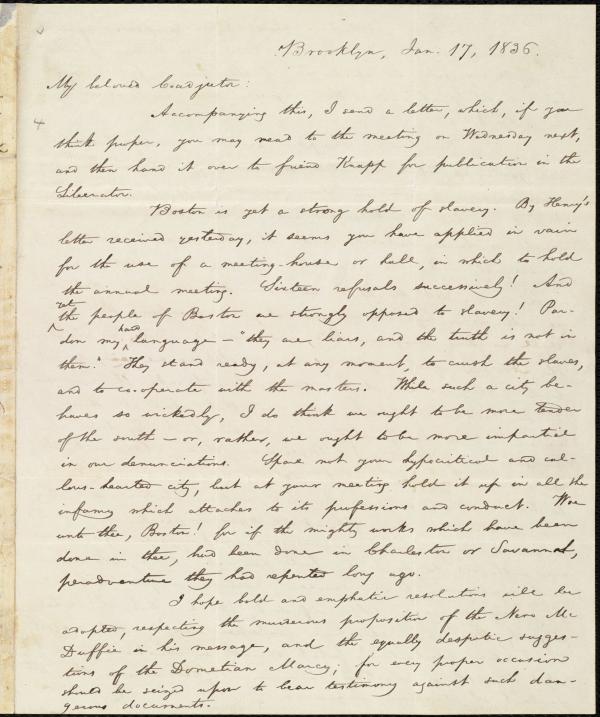 Brooklyn, Jan. 17, 1836.
My beloved Coadjutor:
Accompanying this, I send a letter, which, if you
think proper, you may read to the meeting on Wednesday next,
and then hand it over to friend Knapp for publication in the
Liberator.
Boston is yet a strong hold of slavery. By Henry's
letter received yesterday, it seems you have applied in vain
for the use of a meeting-house or hall, in which to hold
the annual meeting. Sixteen refusals successively! And
yet
the people of Boston are strongly opposed to slavery! Par-
hard
don my language — "they are liars, and the truth is not in
them." They stand ready, at any moment, to crush the slaves,
and to co-operate with the masters. While such a city be-
haves so wickedly, I do think we ought to be more tender
of the south — or, rather, we ought to be more impartial
in our denunciations. Spare not your hypocritical and cal-
lous-hearted city, but at your meeting hold it up in all the
infamy which attaches to its professions and conduct. Woe
unto thee, Boston! for if the mighty works which have been
done in thee, had been done in Charleston or Savannah,
peradventure they had repented long ago.
I hope bold and emphatic resolutions will be
adopted, respecting the murderous proposition of the Nero Mc
Duffie in his message, and the equally despotic sugges-
tions of the Dometian Marcy; for every proper occasion
should be seized upon to bear testimony against such dan-
gerous documents.